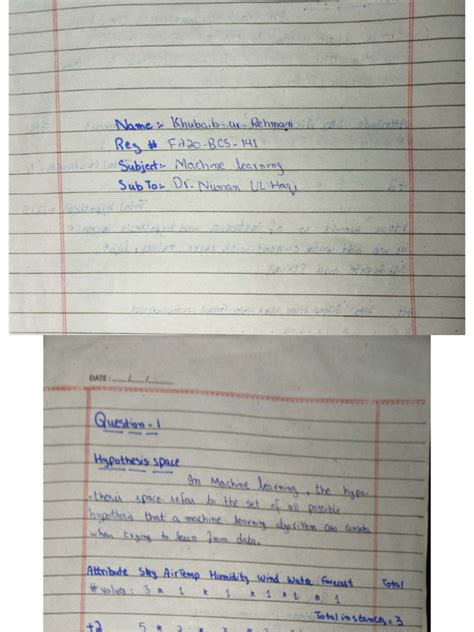 Name:- Khubaib-ur-Rehman
Reg # FA20-BCS-141
Subject:- Machine learning
Sub To:- Dr. Numan UL Haq
DATE:
Question-1
Hypothesis space
In Machine learning, the hypo
-thesis space refer to the set of all possible
hypothesis that a machine learning algorithm can consider
when trying to learn from data.
Attribute Sky AirTemp Humidity Wind Water Forecast Total
# values: 3 * 1 * 1 * 1 * 1 * 1
Total instances = 3
+2 5 *